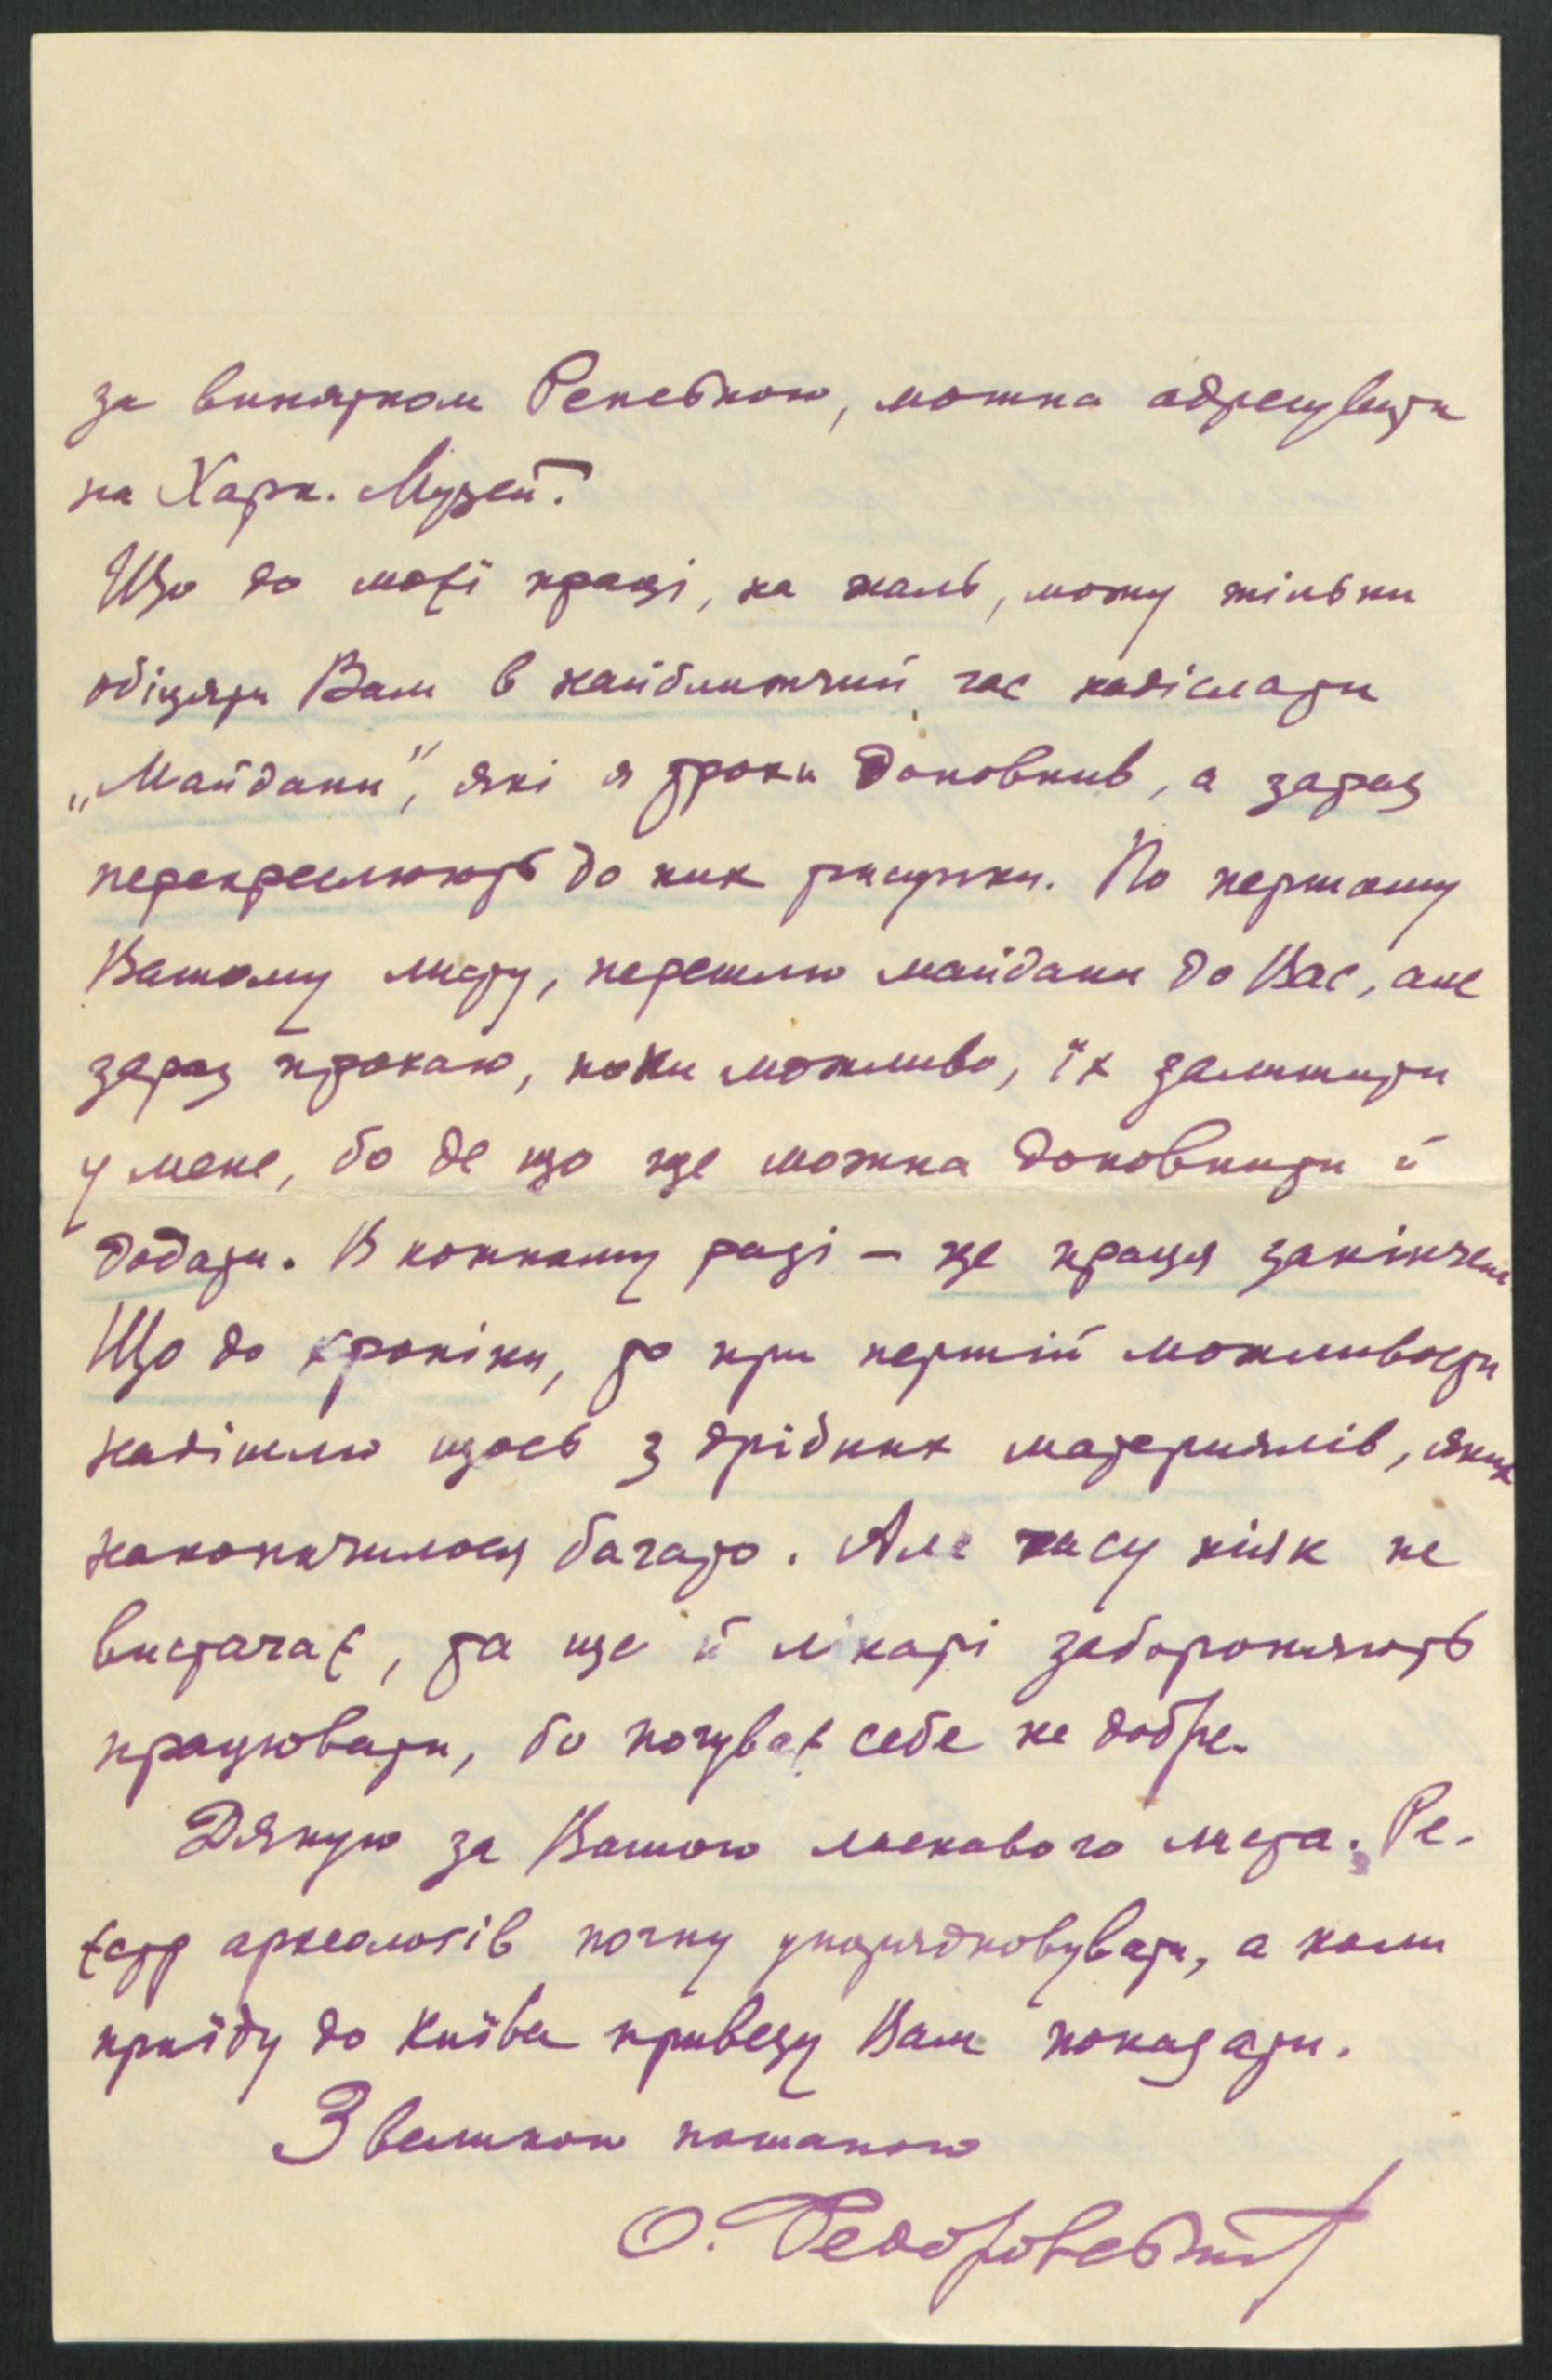 за винятком Репебкою, можна адресувати
на Харк. Музей.
Що до моєї праці, на жаль, можу тільки
обіцяти Вам в найближчий час надіслати
„Майдани", які я трохи доповнив, а зараз
перекреслюють до них рисунки. По першому
Вашому листу, перешлю майдани до Вас, але
зараз прохаю, поки можливо, їх залишити
у мене, бо де що ще можна доповнити й
додати. В кожному разі — це праця закінчена
Що до хроніки, то при першій можливости
надішлю щось з дрібних материялів, яких
накопичилося багато. Але часу ніяк не
вистачає, та ще й лікарі забороняють
працювати, бо почуває себе не добре.
Дякую за Вашого ласкавого листа. Ре-
єстр археологів почну упорядковувати, а коли
приїду до Київа привезу Вам показати.
З великою пошаною
О. Федоровський